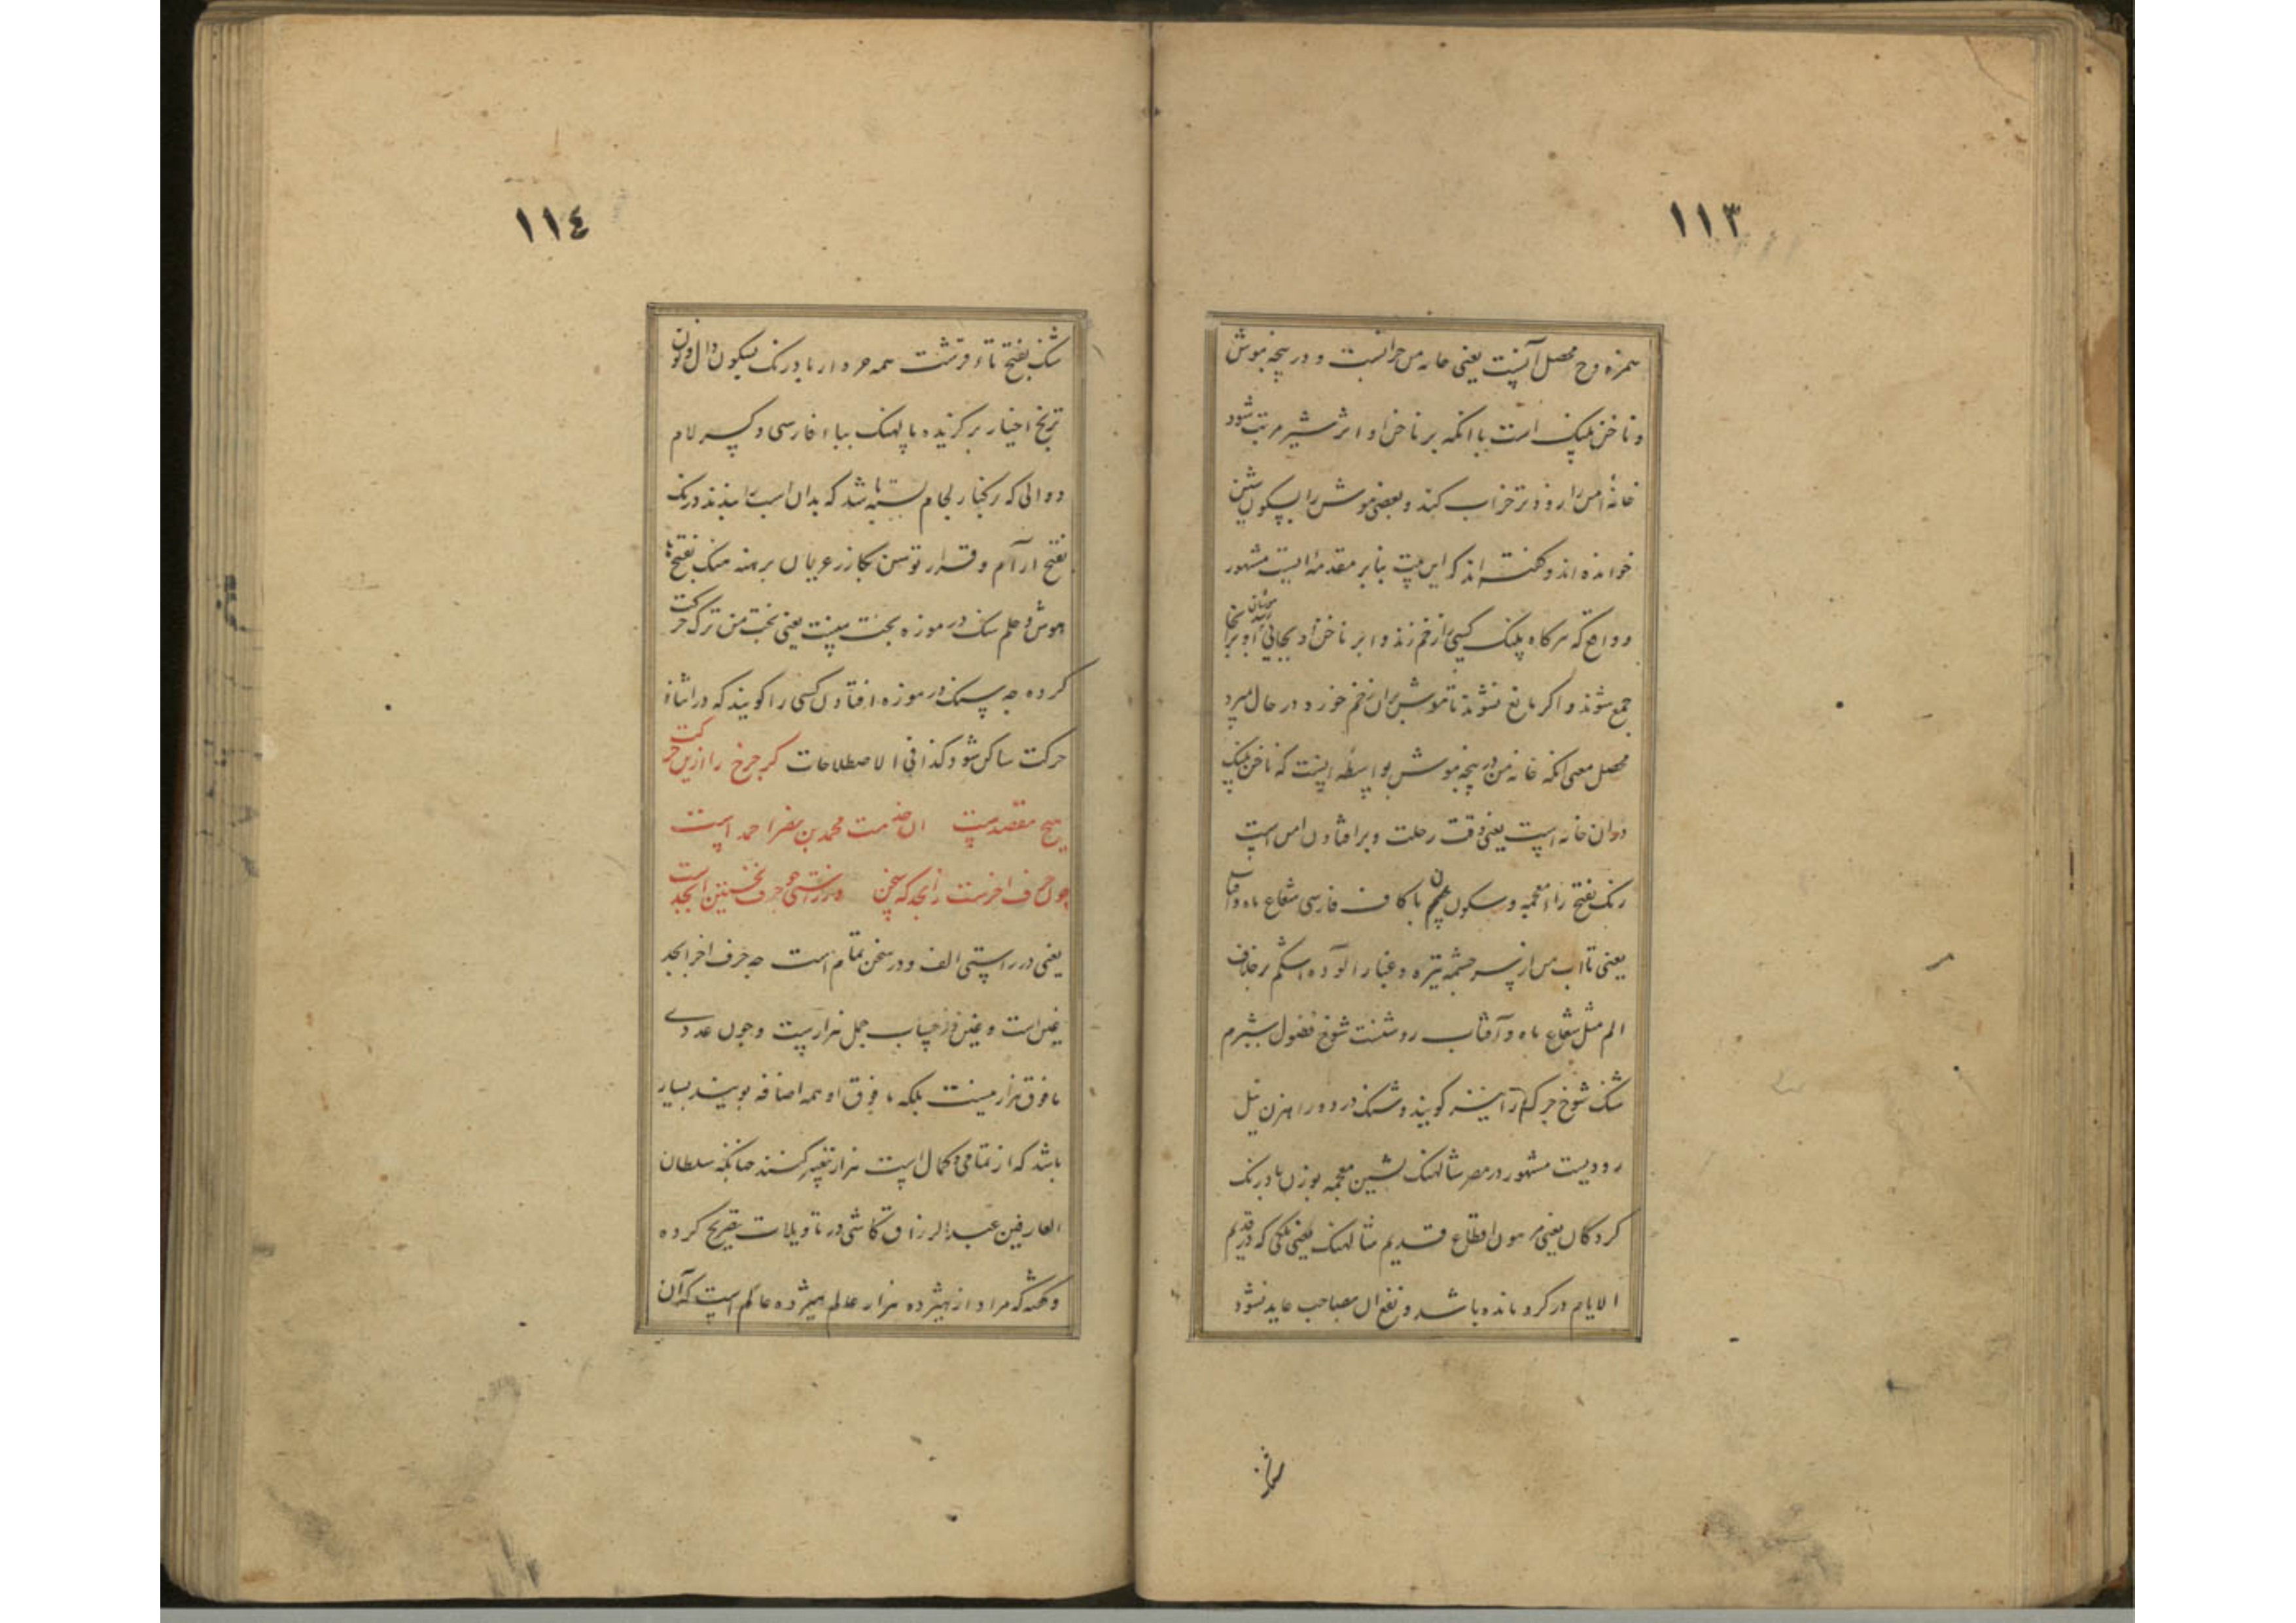 ١١٣
همزه وح محصل آنست یعنی خانه من خرابست و در پنجه موش
و ناخن پلنک است با انکه بر ناخن او اثر شیر مرتب شود
خانهٔ امن را زودتر خراب کند و بعضی موش را بسکون شین
خوانده اند و کفته اند که این بیت بنابر مقدمهٔ ایست مشهور
که هرکاه پلنک کسی را زخم زند و اثر ناخن او بجایی رسد موشان آنجا
جمع شوند و اکر مانع نشوند تا موش بران زخم خورد در حال میرد
محصل معنی انکه خانه من در پنجه موش بواسطه اینست که ناخن پلنک
دران خانه است یعنی وقت رحلت و برافتادن امن است
رنک بفتح راء معجمه و سکون نون با کاف فارسی شعاع ماه و آفتاب
یعنی تا آب من از سر چشمه تیره و غبار آلوده است کم برخلاف
الم مثل شعاع ماه و آفتاب روشنست شوخ فضول بیشرم
شنک شوخ را نیز کویند و شنک دزد و راهزن نیل
رودیست مشهور در مصر شالهنک بشین معجمه بوزن بادرنک
کروکان یعنی مرهون اقطاع قدیم شالهنک یعنی ملکی که در قدیم
الایام در کرو مانده باشد و نفع ان بصاحب عاید نشود
١١٤
شنک بفتح تاء قرشت بادرنک بسکون دال و نون
ترنج اختیار برکزیده پالهنک بباء فارسی و کسر لام
دوالی که در کنار لجام بسته باشد که بدان اسب را بندند درنک
بفتح آرام و قرار توسن کازر عریان برهنه هنک بفتح ها
هوش و حلم سنک در موزه بخت منست یعنی بخت من ترک حرکت
کرده چه سنک در موزه افتادن کسی را کویند که در اثناء
حرکت ساکن شود کذا فی الاصطلاحات کر چرخ را ازین حرکت
هیچ مقصدست ان خدمت محمد بن نصر احمد است
چون حرف اخرست زابجد که سخن در راستی چو حرف نخستین ابجد است
یعنی در راستی الف و در سخن تمام است چه حرف اخر ابجد
غین است و غین در حساب جمل هزارست و چون عددی
مافوق هزار نیست بلکه مافوق او همه اضافه بویند بسیار
باشد که از تمامی و کمال است هزار تفسیر کنند چنانکه سلطان
العارفین عبدالرزاق کاشی در تاویلات تصریح کرده
و کفته که مراد از هیژده هزار عالم هیژده عالم است که آن